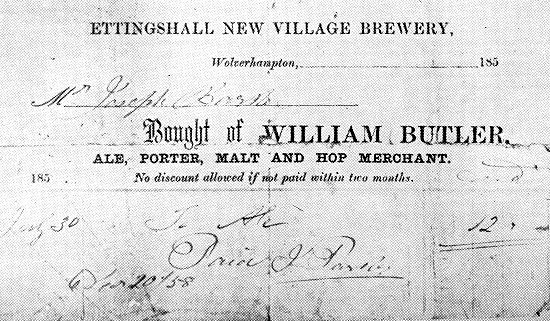 ETTINGSHALL NEW VILLAGE BREWERY,
Wolverhampton, 185
Mr Joseph
Bought of WILLIAM BUTLER,
ALE, PORTER, MALT AND HOP MERCHANT.
185 No discount allowed if not paid within two months.
30 To Ale 12
Paid
20 /58